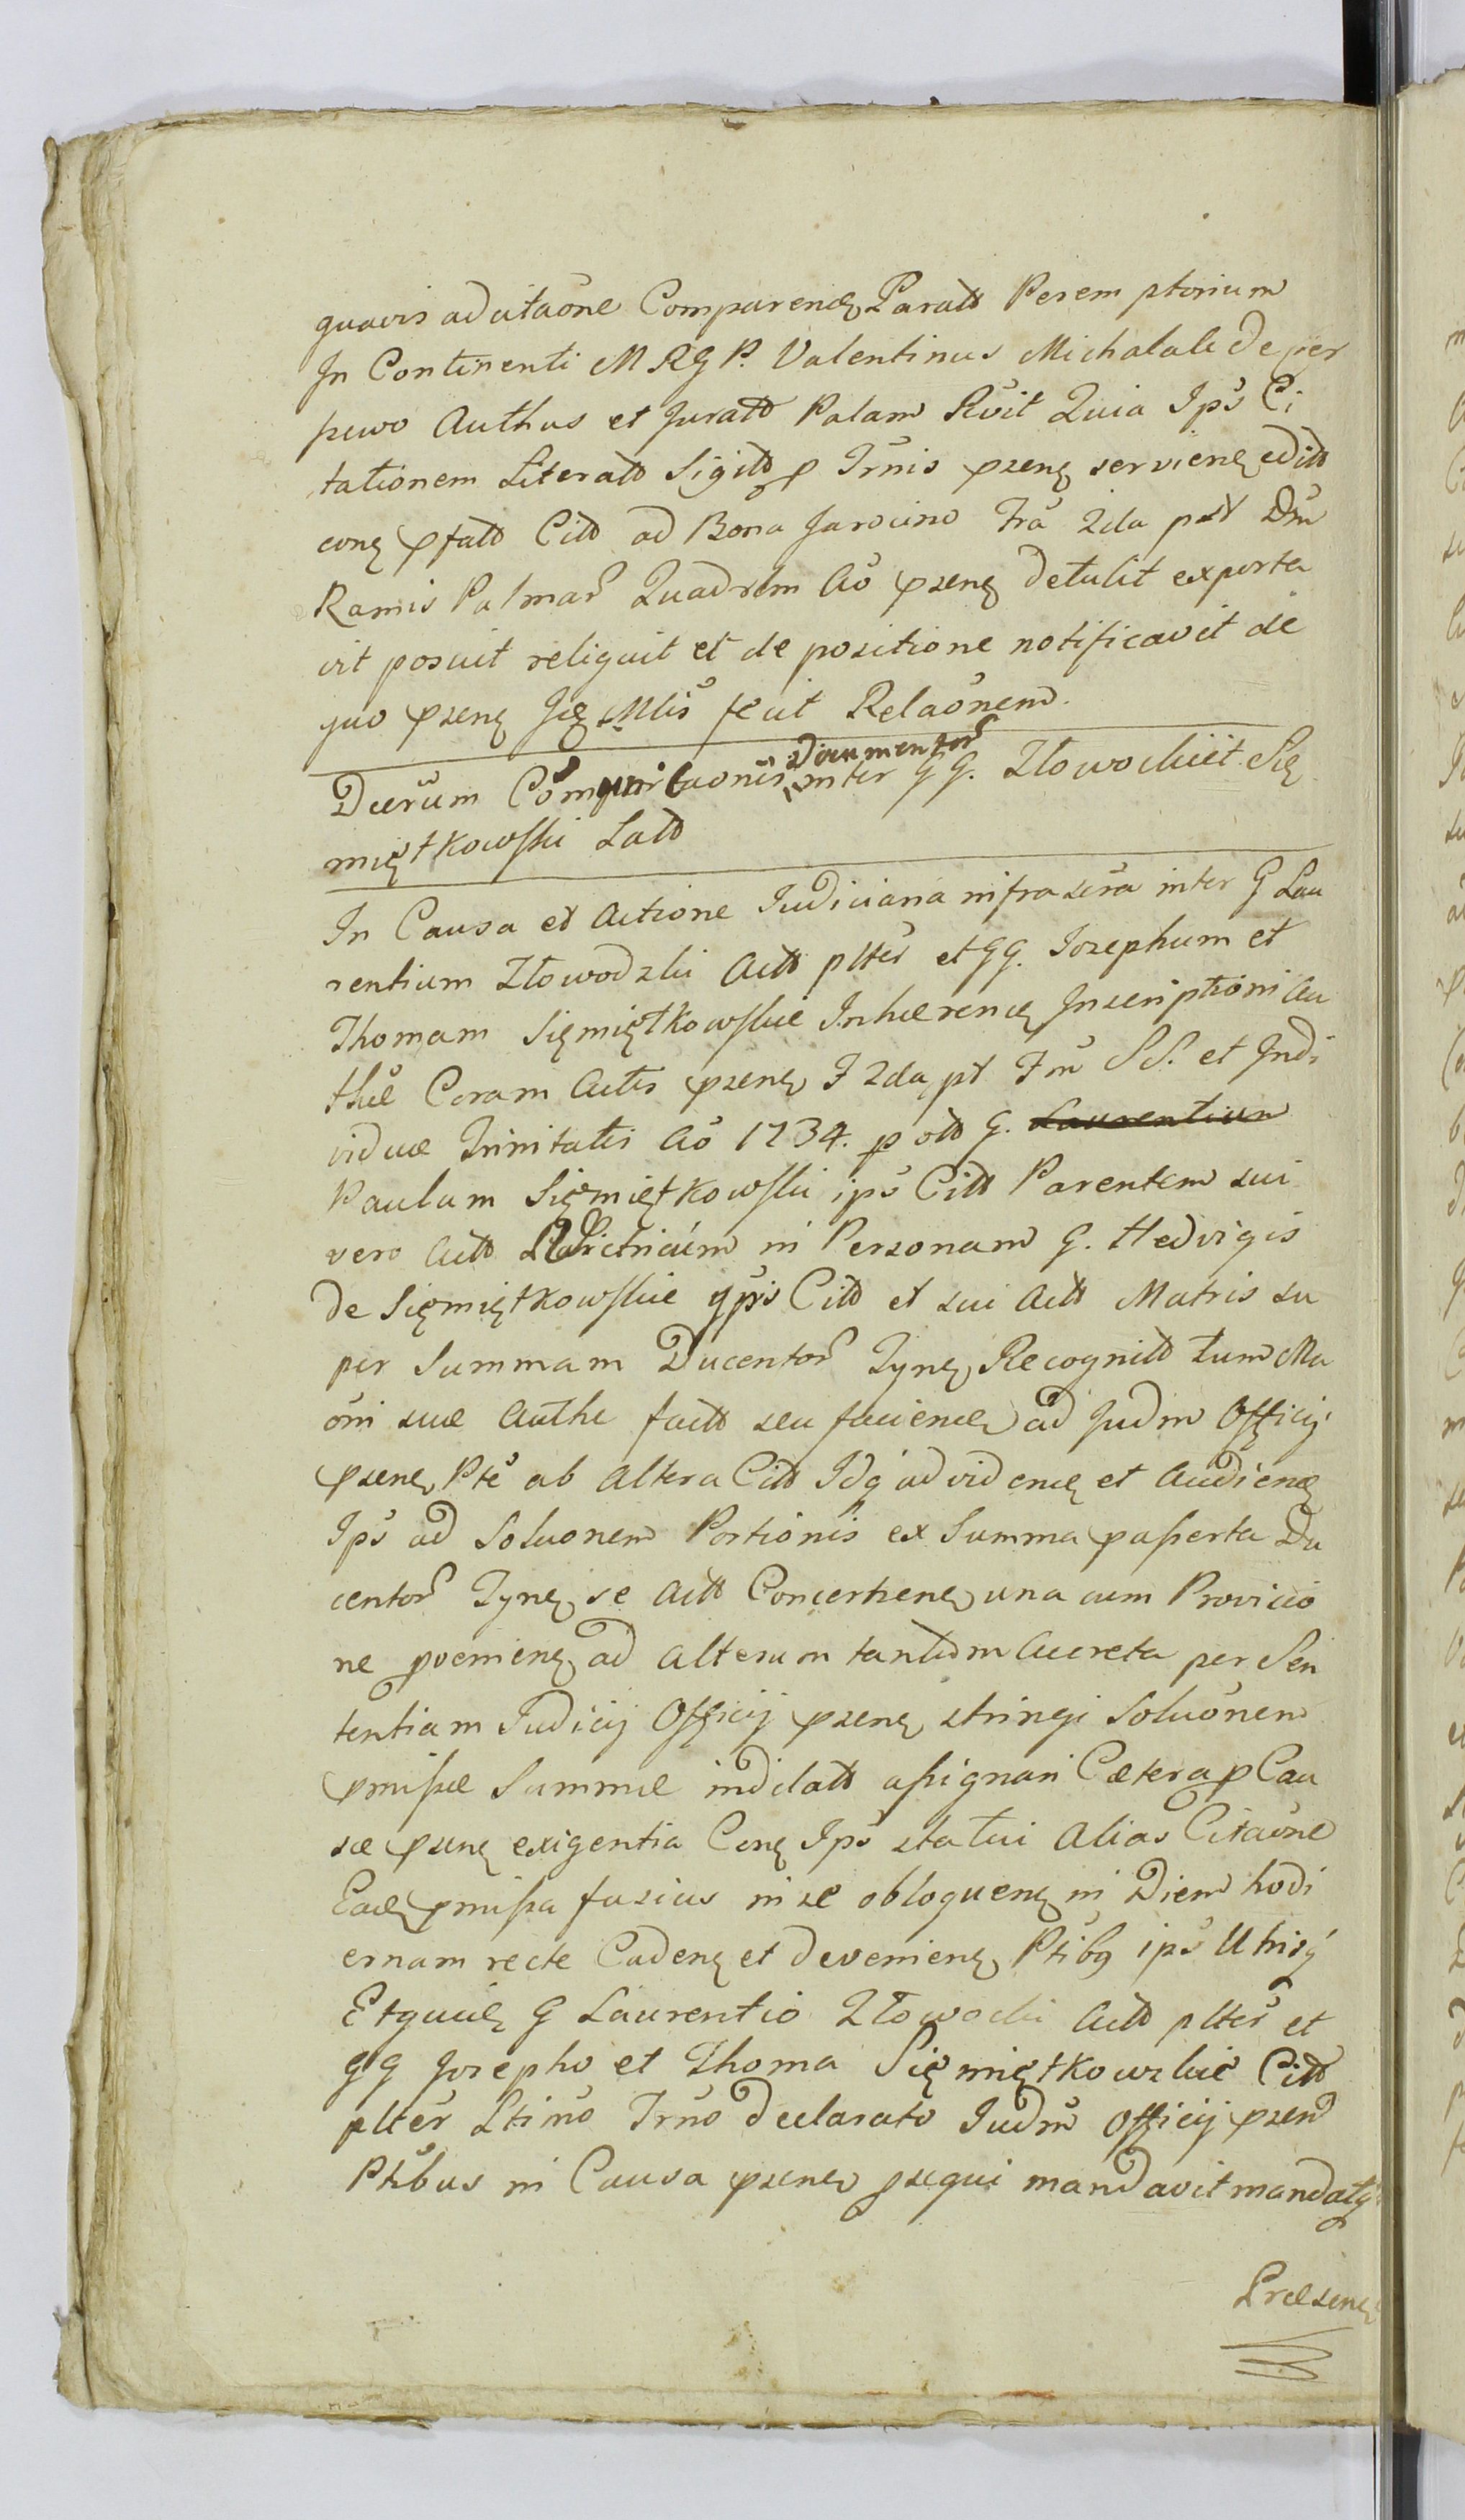 quavis ad citaōne Comparenđ Paratt Perem ptorium
In Continenti M R G P. Valentinus Michalak de per
puwo Authus et Juratt Palam Rvit Quia Ips Ci
tationem Literatt Sigitt p Trnis przenę servienę editt
conę pfatt Citt ad Bona Jarocino Fra 2da pst Dm
Ramis Palmar Quadrlm Ao przenę detulit exporta
vit posuit reliquit et de positione notificavit de
quo przenę Mtis fecit Relaōnem.
Decrum Comportaonis Documentor inter GG. Złowocki et Się
miętkowski Latt
In Causa et Actione Judiciaria infrascra inter G Lau
rentium Złowodzki Actt pltes et GG. Jozephum et
Thomam Sięmiętkowskie Inhærenđ Inscriptioni Au
thæ Coram Actis przenę F 2da pt Fm SS. et Indi
viduæ Trinitatis Ao 1734. p ott G. Laurentium
Paulum Sięmiętkowski ips Citt Parentem sui
vero Actt in Personam G. Hedvigis
de Sięmiętkowskie ips Citt et sui Actt Matris su
per Summam Ducentor Tynę Recognitt tum Ma
oni suæ Authe factt seu faciende ad Judm Officij
przenę Pte ab altera Citt Idq ad videnđ et Audienđ
Ips ad Soluonem Portionis ex Summa passerta Du
centor Tynę se Actt Concernenę una cum Provicio
ne pvenienę ad alterum tantum Accreta per Sen
tentiam Judicij Officij przenę stringi Soluōnem
pmissæ Summæ indilatt assignari Cætera p Cau
sæ przenę exigentia Conę Ips statui Alias Citaōne
Eadę pmissa fusius in se obloquenę in Diem hodi
ernam recte Cadenę et devenienę Ptibq ips Utrisq
Etquidę G Laurentio Złowocki Actt pltes et
GG Jozepho et Thoma Sięmiętkowskie Citt
pltes Ltimo Trno declarato Judm Officij przen
Ptibus in Causa przenę pzequi mandavit mandatq
Præsenę